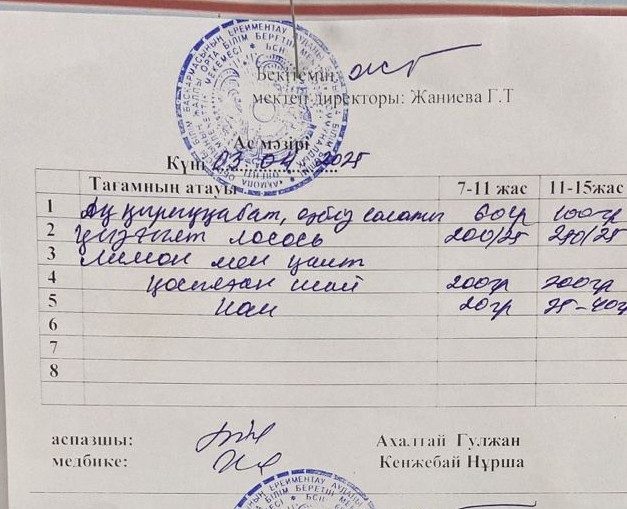 Бекітемін
мектеп директоры: Жаниева Г.Т
Ас мәзірі
Күні 03.04 2025
Тағамның атауы 7-11 жас 11-15жас
1 Ақ қырыққабат, сәбіз салаты 60гр 100гр
2 лосось 200/25 250/25
3 Лимон мен қант
4 қосылған шай 200гр 200гр
5 Нан 20гр 25-40гр
6
7
8
аспазшы: Ахалтай Гулжан
медбике: Кенжебай Нұрша